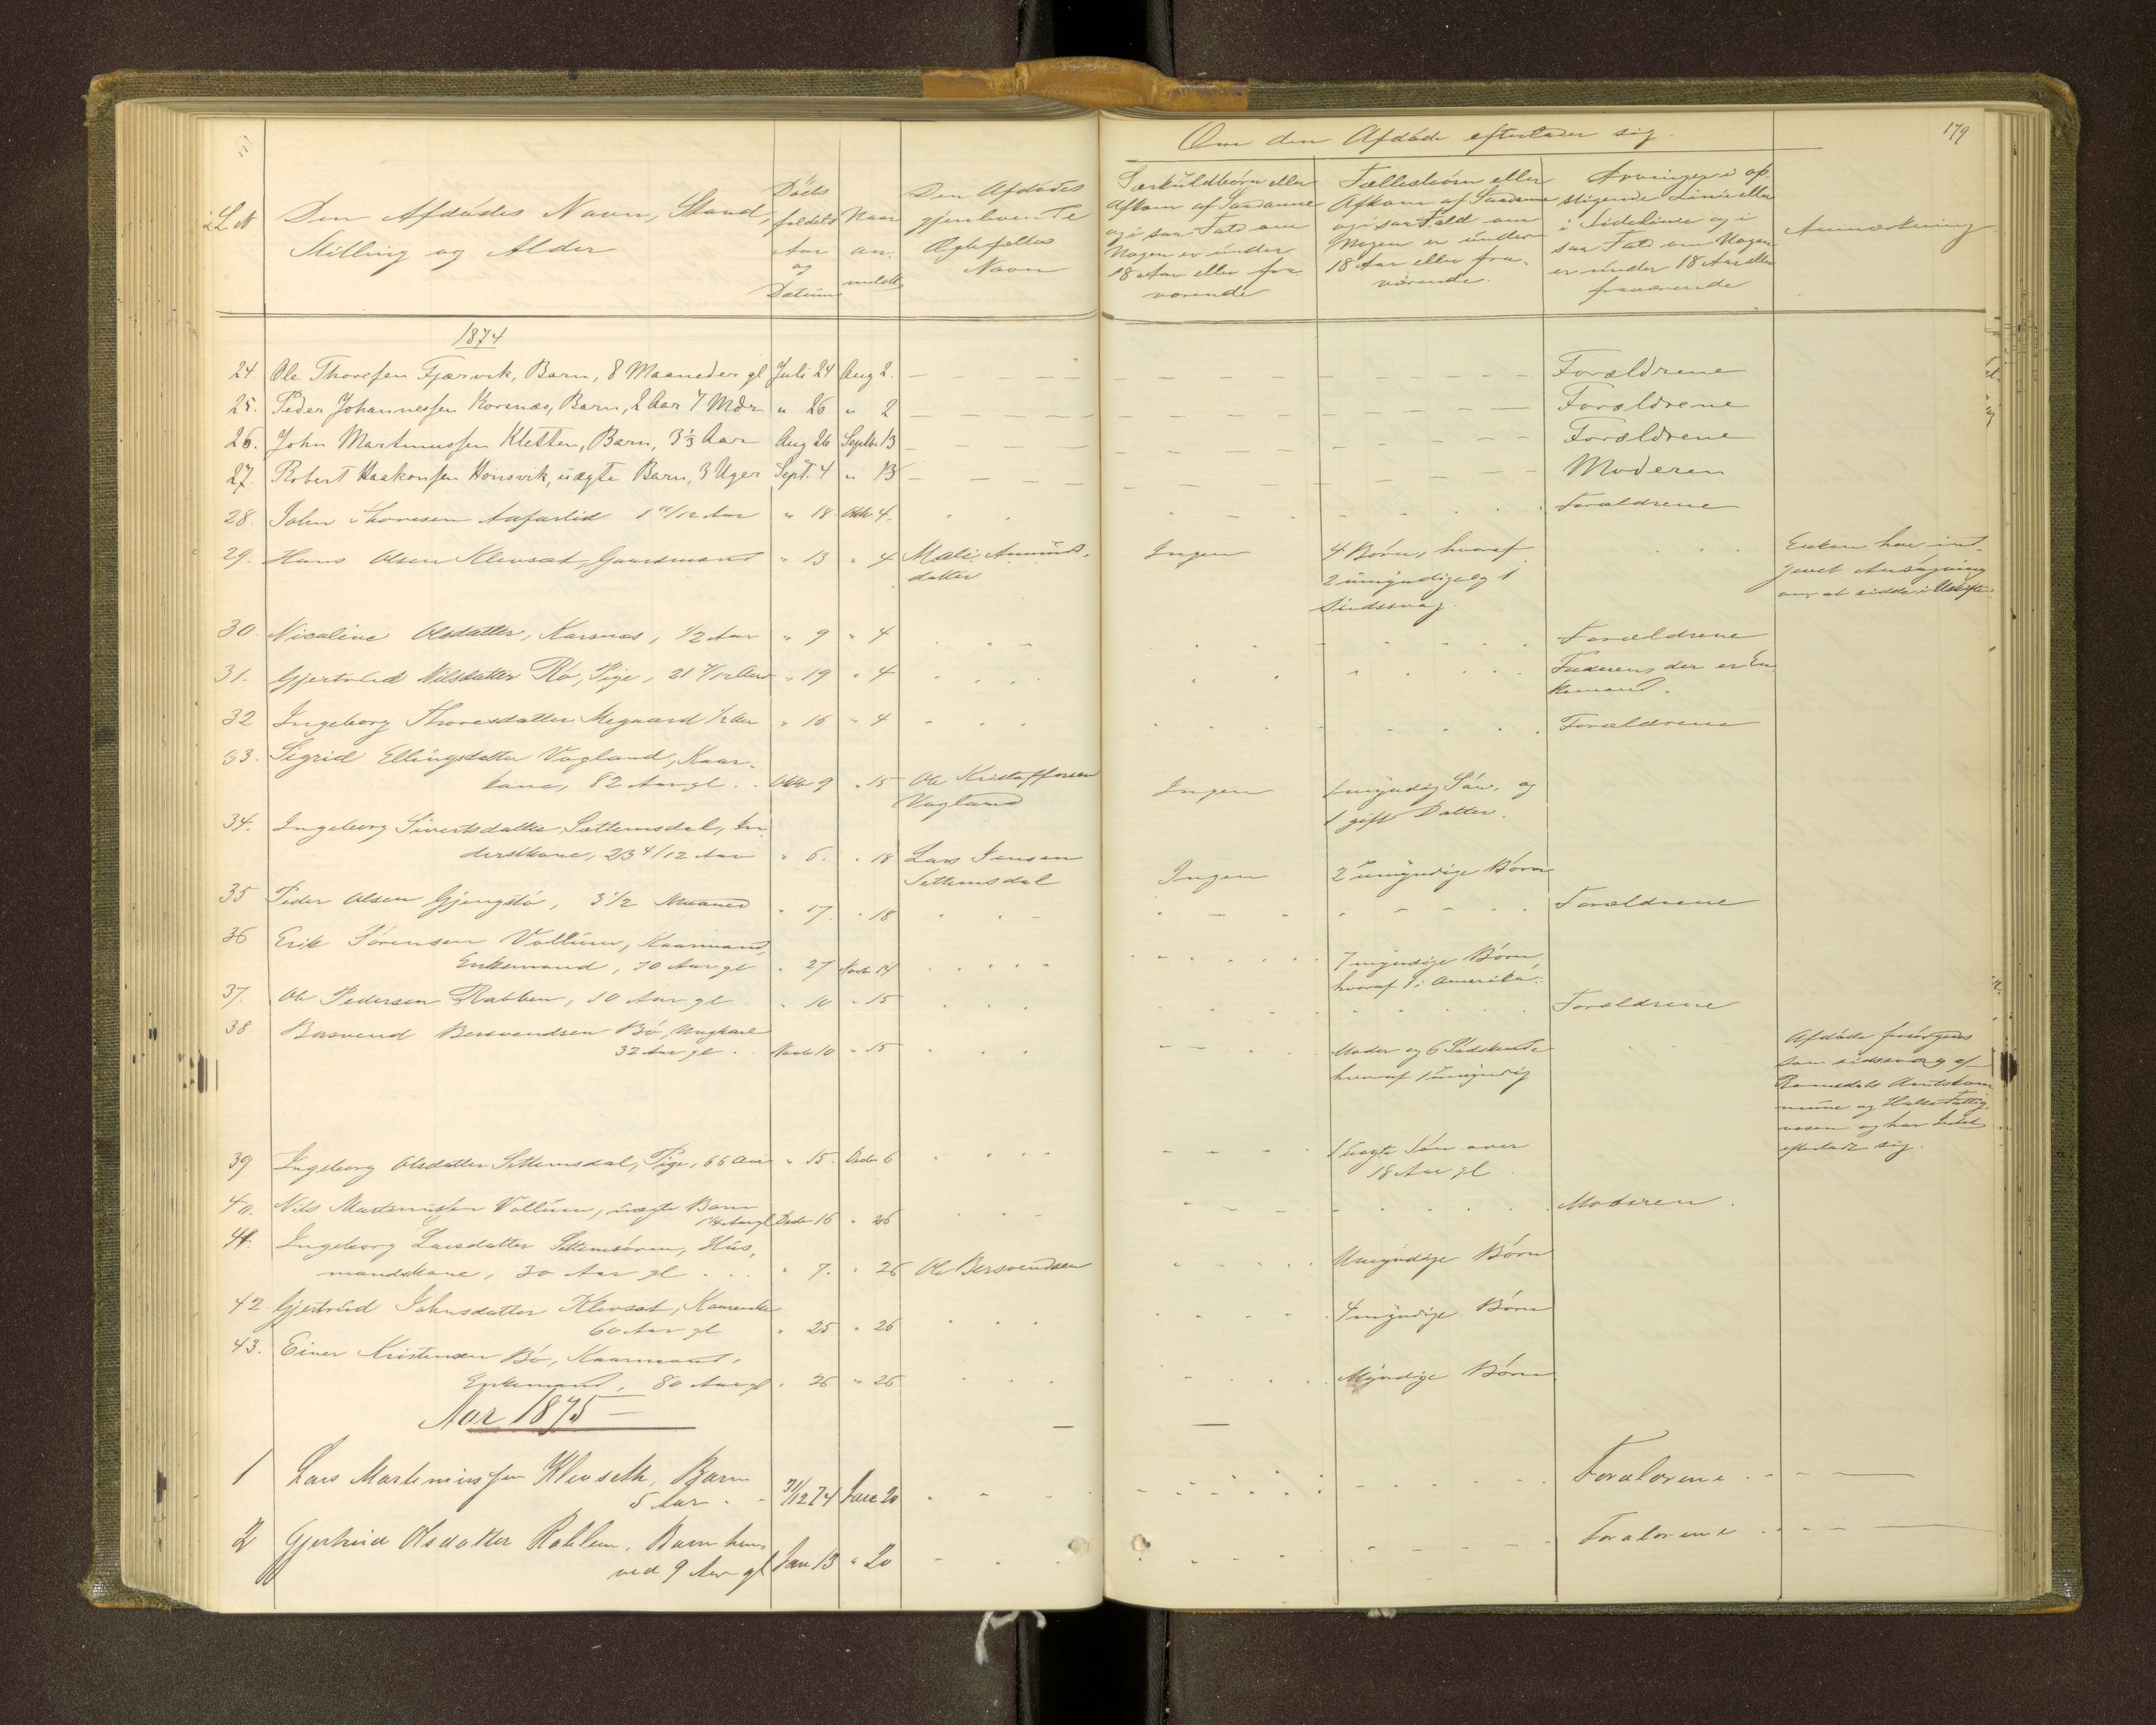 Om den Afdøde efterlader sig.
179
L No
Den Afdødes Navn, Stand, Stilling og Alder
Dødsfaldets Aar og Datum
Naar anmeldt
Den Afdødes gjenlevende Ægtefælles Navn
Særkuldbørn eller Afkom af Saadanne og i saa Fald om Nogen er under 18 Aar eller fraværende
Fællesbørn eller Afkom af Saadanne og i saa Fald om Nogen er under 18 Aar eller fraværende.
Arvinger i opstigende Linie eller i Sidelinie og i saa Fald om Nogen er under 18 Aar eller fraværende
Anmærkning
1874
24. Ole Thoresen Fjærvik, Barn, 8 Maaneder gl Juli 24 Aug 2. Forældrene
25. Peder Johannessen Korsnæs, Barn, 2 Aar 7 Mdr " 26 " 2 Forældrene
26. John Martinussen Kletten, Barn, 3 1/3 Aar Aug 26 Septbr 13 Forældrene
27. Robert Haakonsen Hønsvik, uægte Barn, 3 Uger Sept. 4 " 13 Moderen
28. John Thoresen 1 11/12 Aar " 18 Oktb 4. Forældrene
29. Hans Olsen Klevsæt, Gaardmand " 13 " 4 Mali Amunds- Ingen 4 Børn, hvoraf Enken har ind-
datter 2 umyndige og 1 givet Ansøgning
Sindssvag om at sidde i Uskifte
30. Nicoline Olsdatter, Karsnæs, 1/2 Aar " 9 " 4 Forældrene
31. Gjertrud Nilsdatter Rø, Pige, 21 7/12 Aar " 19 " 4 Faderen, der er En-
kemand.
32 Ingeborg Thoresdatter Megaard 1/2 Aar " 16 " 4 Forældrene
33. Sigrid Ellingsdatter Vagland, Kaar-
kone, 82 Aar gl. Oktb 9 " 15 Ole Kristoffersen Ingen 1 myndig Søn, og
Vagland 1 gift Datter.
34. Ingeborg Sivertsdatter Settemsdal, In-
derstkone, 23 4/12 Aar " 6. " 18 Lars Jensen Ingen 2 umyndige Børn
Settemsdal
35 Peder Olsen Gjengstø, 3 1/2 Maaned " 17. " 18 Forældrene
36 Erik Sørensen Vollum, Kaarmand,
Enkemand, 70 Aar gl " 27 Novb 14 7 myndige Børn,
hvoraf 1 i Amerika.
37. Ole Pedersen Rabben, 10 Aar gl " 10 " 15 Forældrene
38 Bersvend Bersvendsen Bø, Ungkarl
32 Aar gl. Novb 10 " 15 Moder og 6 Sødskende Afdøde forsørgedes
hvoraf 1 umyndig som sidssvag af
Romsdals Amtskom-
mune og Halse Fattig-
væsen og har Intet
efterladt sig.
39 Ingeborg Olsdatter Settemsdal, Pige, 66 Aar " 15. Decbr 6 1 uægte Søn over
18 Aar gl.
40. Nils Martinussen Vollum, uægte Barn
1 1/4 Aar gl Decbr 16 " 26 Moderen.
41. Ingeborg Larsdatter Settemsøren, Hus-
mandskone, 30 Aar gl " 7. " 26 Ole Bersvendsen Umyndige Børn
42. Gjertrud Johnsdatter Klevsæt, Kaarenke
60 Aar gl " 25 " 26 4 myndige Børn
43. Einer Kristensen Bø, Kaarmand,
Enkemand, 80 Aar gl " 26 " 26 Myndige Børn
Aar 1875
1 Lars Martinussen Klevseth, Barn
5 Aar 31/12 74 Jan 20 Forældrene
2 Gjertrud Olsdatter Rabben, Barn hen-
ved 9 Aar gl Jan 13 " 20 Forældrene